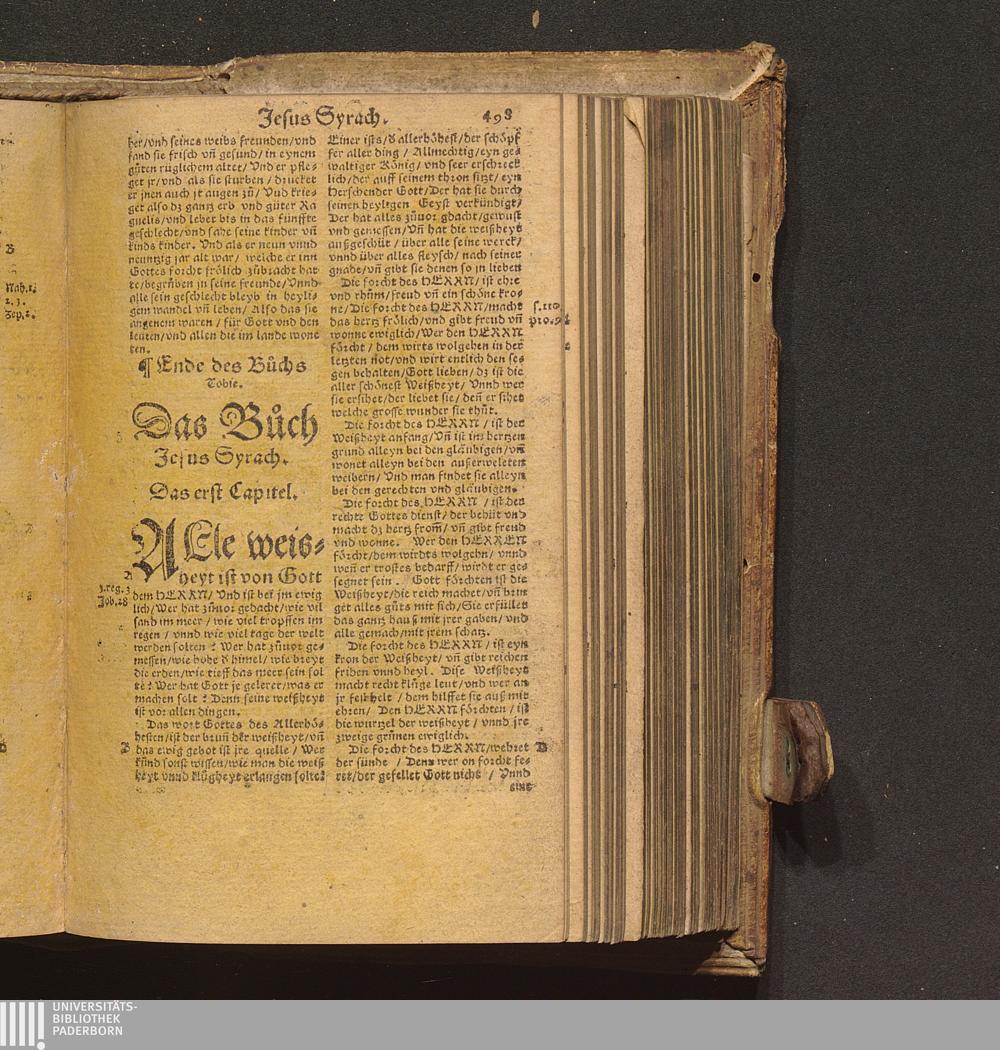 Jesus Syrach. 498
her/vnd seines weibs freunden/vnd
fand sie frisch vñ gesund/in eynem
gůten růglichem alter/Vnd er pfle-
get jr/vnd als sie sturben/drucket
er jnen auch jr augen zů/Vnd krie-
get also dz gantz erb vnd güter Ra
guelis/vnd lebet bis in das fünffte
geschlecht/vnd sahe seine kinder vñ
kinds kinder. Vnd als er neun vnnd
neuntzig jar alt war/welche er inn
Gottes forcht frölich zůbracht hat
te/begrůben jn seine freunde/Vnnd
alle sein geschlecht bleyb in heyli-
gem wandel vñ leben/Also das sie
angenem waren/für Gott vnd den
leuten/vnd allen die im lande wone
ten.
¶ Ende des Bůchs
Tobie.
Das Bůch
Jesus Syrach.
Das erst Capitel.
ALle weis-
heyt ist von Gott
dem HERRN/Vnd ist bei jm ewig
lich/Wer hat zůuor gedacht/wie vil
sand im meer/wie viel tropffen im
regen/vnnd wie viel tage der welt
werden solten? Wer hat zůuor ge-
messen/wie hohe d himel/wie breyt
die erden/wie tieff das meer sein sol
te? Wer hat Gott je geleret/was er
machen solt? Denn seine weißheyt
ist vor allen dingen.
Das wort Gottes des Allerhö-
hesten/ist der brun der weißheyt/vñ
das ewig gebot ist jre quelle/Wer
künd sonst wissen/wie man die weiß
heyt vnnd klůgheyt erlangen solte?
A
3.reg.3
Job.28
B
Einer ists/d allerhöhest/der schöpf
fer aller ding/Allmechtig/eyn ge-
waltiger König/vnd seer erschreck
lich/der auff seinem thron sitzt/eyn
herschender Gott/Der hat sie durch
seinen heyligen Geyst verkündigt/
Der hat alles zůuor gdacht/gewust
vnd gemessen/Vñ hat die weißheyt
außgeschüt/über alle seine werck/
vnnd über alles fleysch/nach seiner
gnade/vñ gibt sie denen so jn lieben
Die forcht des HERRN/ist ehre
vnd rhům/freud vñ ein schöne kro-
ne/Die forcht des HERRN/macht
das hertz frölich/vnd gibt freud vñ
wonne ewiglich/Wer den HERRN
förcht/dem wirts wolgehen in der
letzten not/vnd wirt entlich den se-
gen behalten/Gott lieben/dz ist die
aller schönest Weißheyt/Vnnd wer
sie ersihet/der liebet sie/deñ er sihet
welche grosse wunder sie thůt.
Die forcht des HERRN/ist der
Weißheyt anfang/Vñ ist im hertzen
grund alleyn bei den glaubigen/vñ
wonet alleyn bei den außerweleten
weibern/Vnd man findet sie alleyn
bei den gerechten vnd glaubigen.
Die forcht des HERRN/ist der
rechte Gottes dienst/der behüt vnd
macht dz hertz from̃/vñ gibt freud
vnd wonne. Wer den HERREN
förcht/dem wirdts wolgehn/vnnd
weñ er trostes bedarff/wirdt er ge-
segnet sein. Gott förchten ist die
Weißheyt/die reich machet/vñ brin
get alles gůts mit sich/Sie erfüllet
das gantz hauß mit jrer gaben/vnd
alle gemach/mit jrem schatz.
Die forcht des HERRN/ist eyn
kron der Weißheyt/vñ gibt reichen
friden vnnd heyl. Dise Weißheyt
macht recht klůge leut/vnd wer an
jr fest helt/dem hilffet sie auß mit
ehren/Den HERRN förchten/ist
die wurzel der weißheyt/vnnd jre
zweige grünen ewiglich.
Die forcht des HERRN/wehret
der sünde/Denn wer on forcht fe-
ret/der gefellet Gott nicht/Vnnd
seine
s.110
pro.9
D
B
Nah.1.
2.3.
Zep.2.
UNIVERSITÄTS-
BIBLIOTHEK
PADERBORN